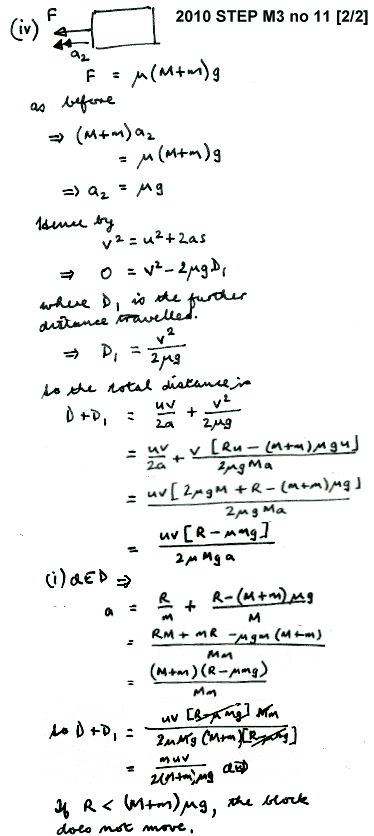 2010 STEP M3 no 11 [2/2]
(iv) F
a₂
F = μ(M+m)g
as before
⇒ (M+m)a₂
= μ(M+m)g
⇒ a₂ = μg
Hence by
v² = u² + 2as
⇒ 0 = v² − 2μgD₁
where D₁ is the further
distance travelled.
⇒ D₁ = v²/2μg
so the total distance is
D+D₁ = uv/2a + v²/2μg
= uv/2a + v[Ru − (M+m)μgu]/2μgMa
= uv[2μgM + R − (M+m)μg]/2μgMa
= uv[R − μmg]/2μMga
(i) ⇒
a = R/m + R−(M+m)μg/M
= RM + mR − μgm(M+m)/Mm
= (M+m)(R−μmg)/Mm
so D+D₁ = uv[R−μmg]Mm/2μMg(M+m)[R−μmg]
= muv/2(M+m)μg
If R < (M+m)μg, the block
does not move.